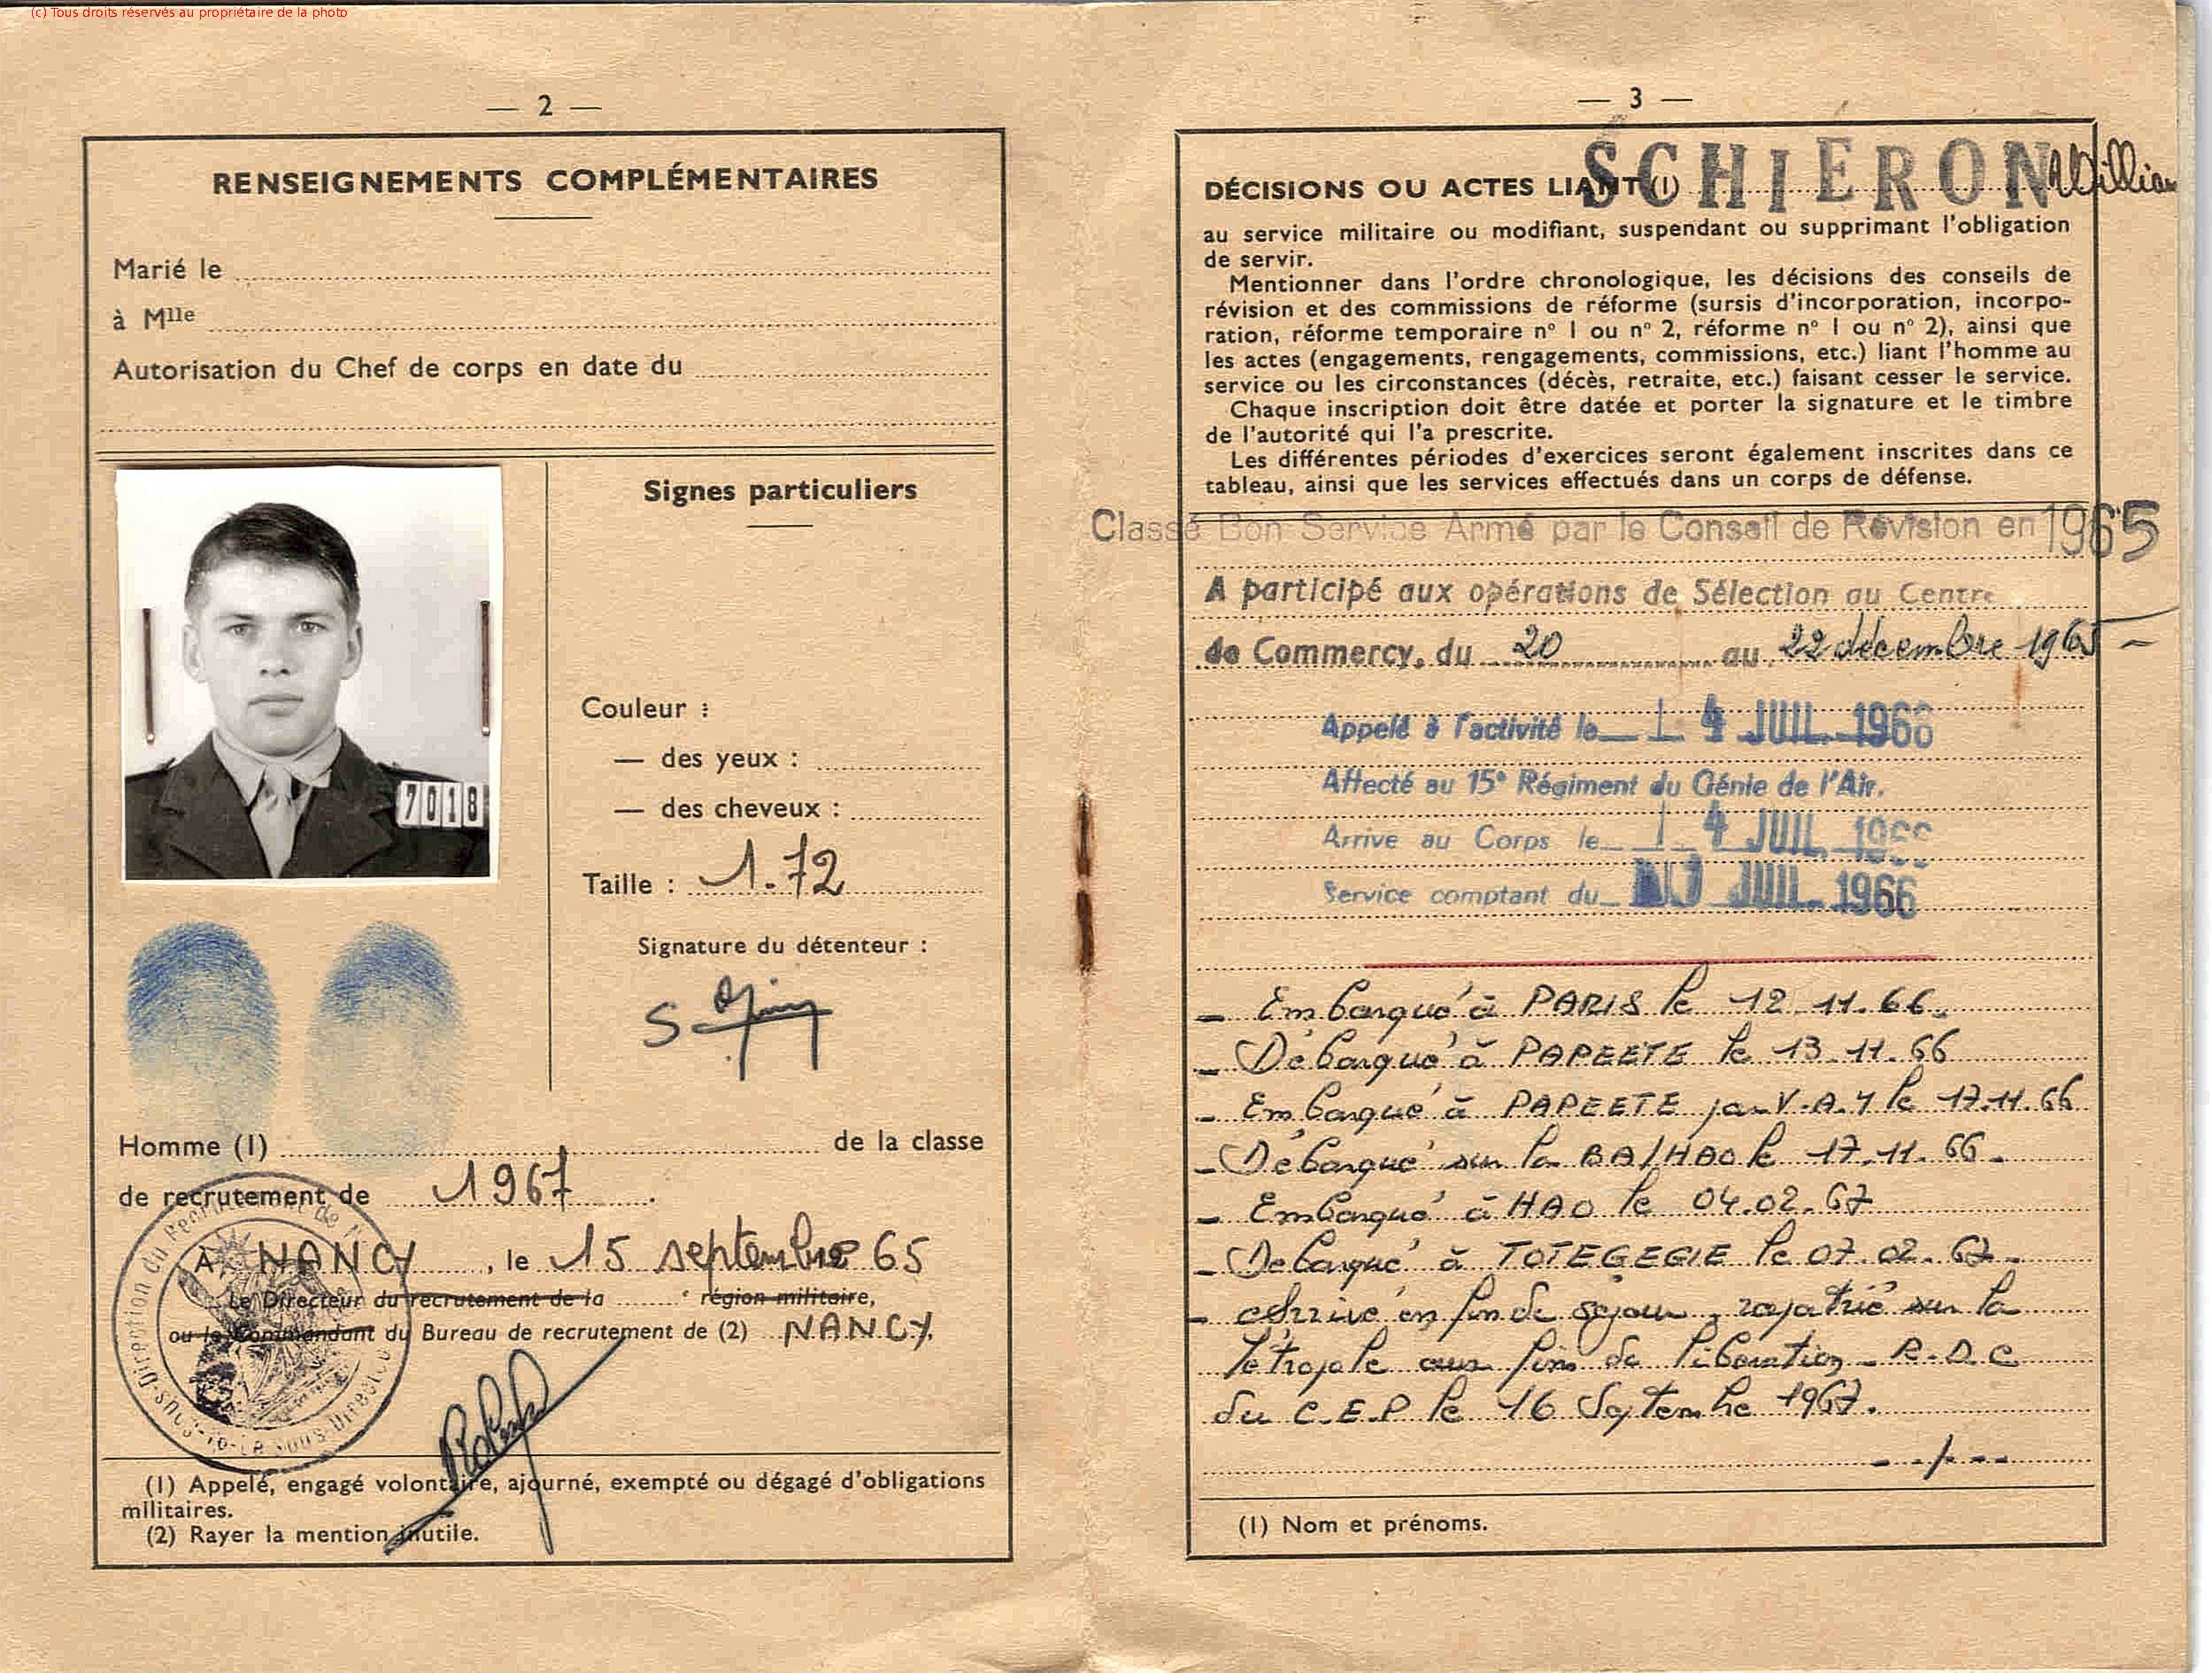 (c) Tous droits réservés au propriétaire de la photo
— 2 —
RENSEIGNEMENTS COMPLÉMENTAIRES
Marié le
à Mlle
Autorisation du Chef de corps en date du
Signes particuliers
7018
Couleur :
— des yeux :
— des cheveux :
Taille : 1.72
Signature du détenteur :
Homme (1) de la classe
de recrutement de 1967
A NANCY, le 15 septembre 65
Le Directeur du recrutement de la région militaire,
ou le Commandant du Bureau de recrutement de (2) NANCY.
Direction du Recrutement de
(1) Appelé, engagé volontaire, ajourné, exempté ou dégagé d'obligations
militaires.
(2) Rayer la mention inutile.
— 3 —
SCHIÉRON William
DÉCISIONS OU ACTES LIANT (1)
au service militaire ou modifiant, suspendant ou supprimant l'obligation
de servir.
Mentionner dans l'ordre chronologique, les décisions des conseils de
révision et des commissions de réforme (sursis d'incorporation, incorpo-
ration, réforme temporaire n° 1 ou n° 2, réforme n° 1 ou n° 2), ainsi que
les actes (engagements, rengagements, commissions, etc.) liant l'homme au
service ou les circonstances (décès, retraite, etc.) faisant cesser le service.
Chaque inscription doit être datée et porter la signature et le timbre
de l'autorité qui l'a prescrite.
Les différentes périodes d'exercices seront également inscrites dans ce
tableau, ainsi que les services effectués dans un corps de défense.
Classé Bon Service Armé par le Conseil de Révision en 1965
A participé aux opérations de Sélection au Centre
de Commercy, du 20 au 22 décembre 1965 -
Appelé à l'activité le 4 JUIL. 1966
Affecté au 15e Régiment du Génie de l'Air.
Arrive au Corps le 4 JUIL. 1966
Service comptant du JUIL. 1966
- Embarqué à PARIS le 12.11.66.
- Débarqué à PAPEETE le 13.11.66
- Embarqué à PAPEETE par V.A.Y le 17.11.66
- Débarqué sur la BA/HAO le 17.11.66.
- Embarqué à HAO le 04.02.67
- Débarqué à TOTEGEGIE le 07.02.67.
- Arrivé en fin de séjour, rapatrié sur la
Métropole aux fins de libération - R.D.C
du C.E.P le 16 Septembre 1967.
(1) Nom et prénoms.